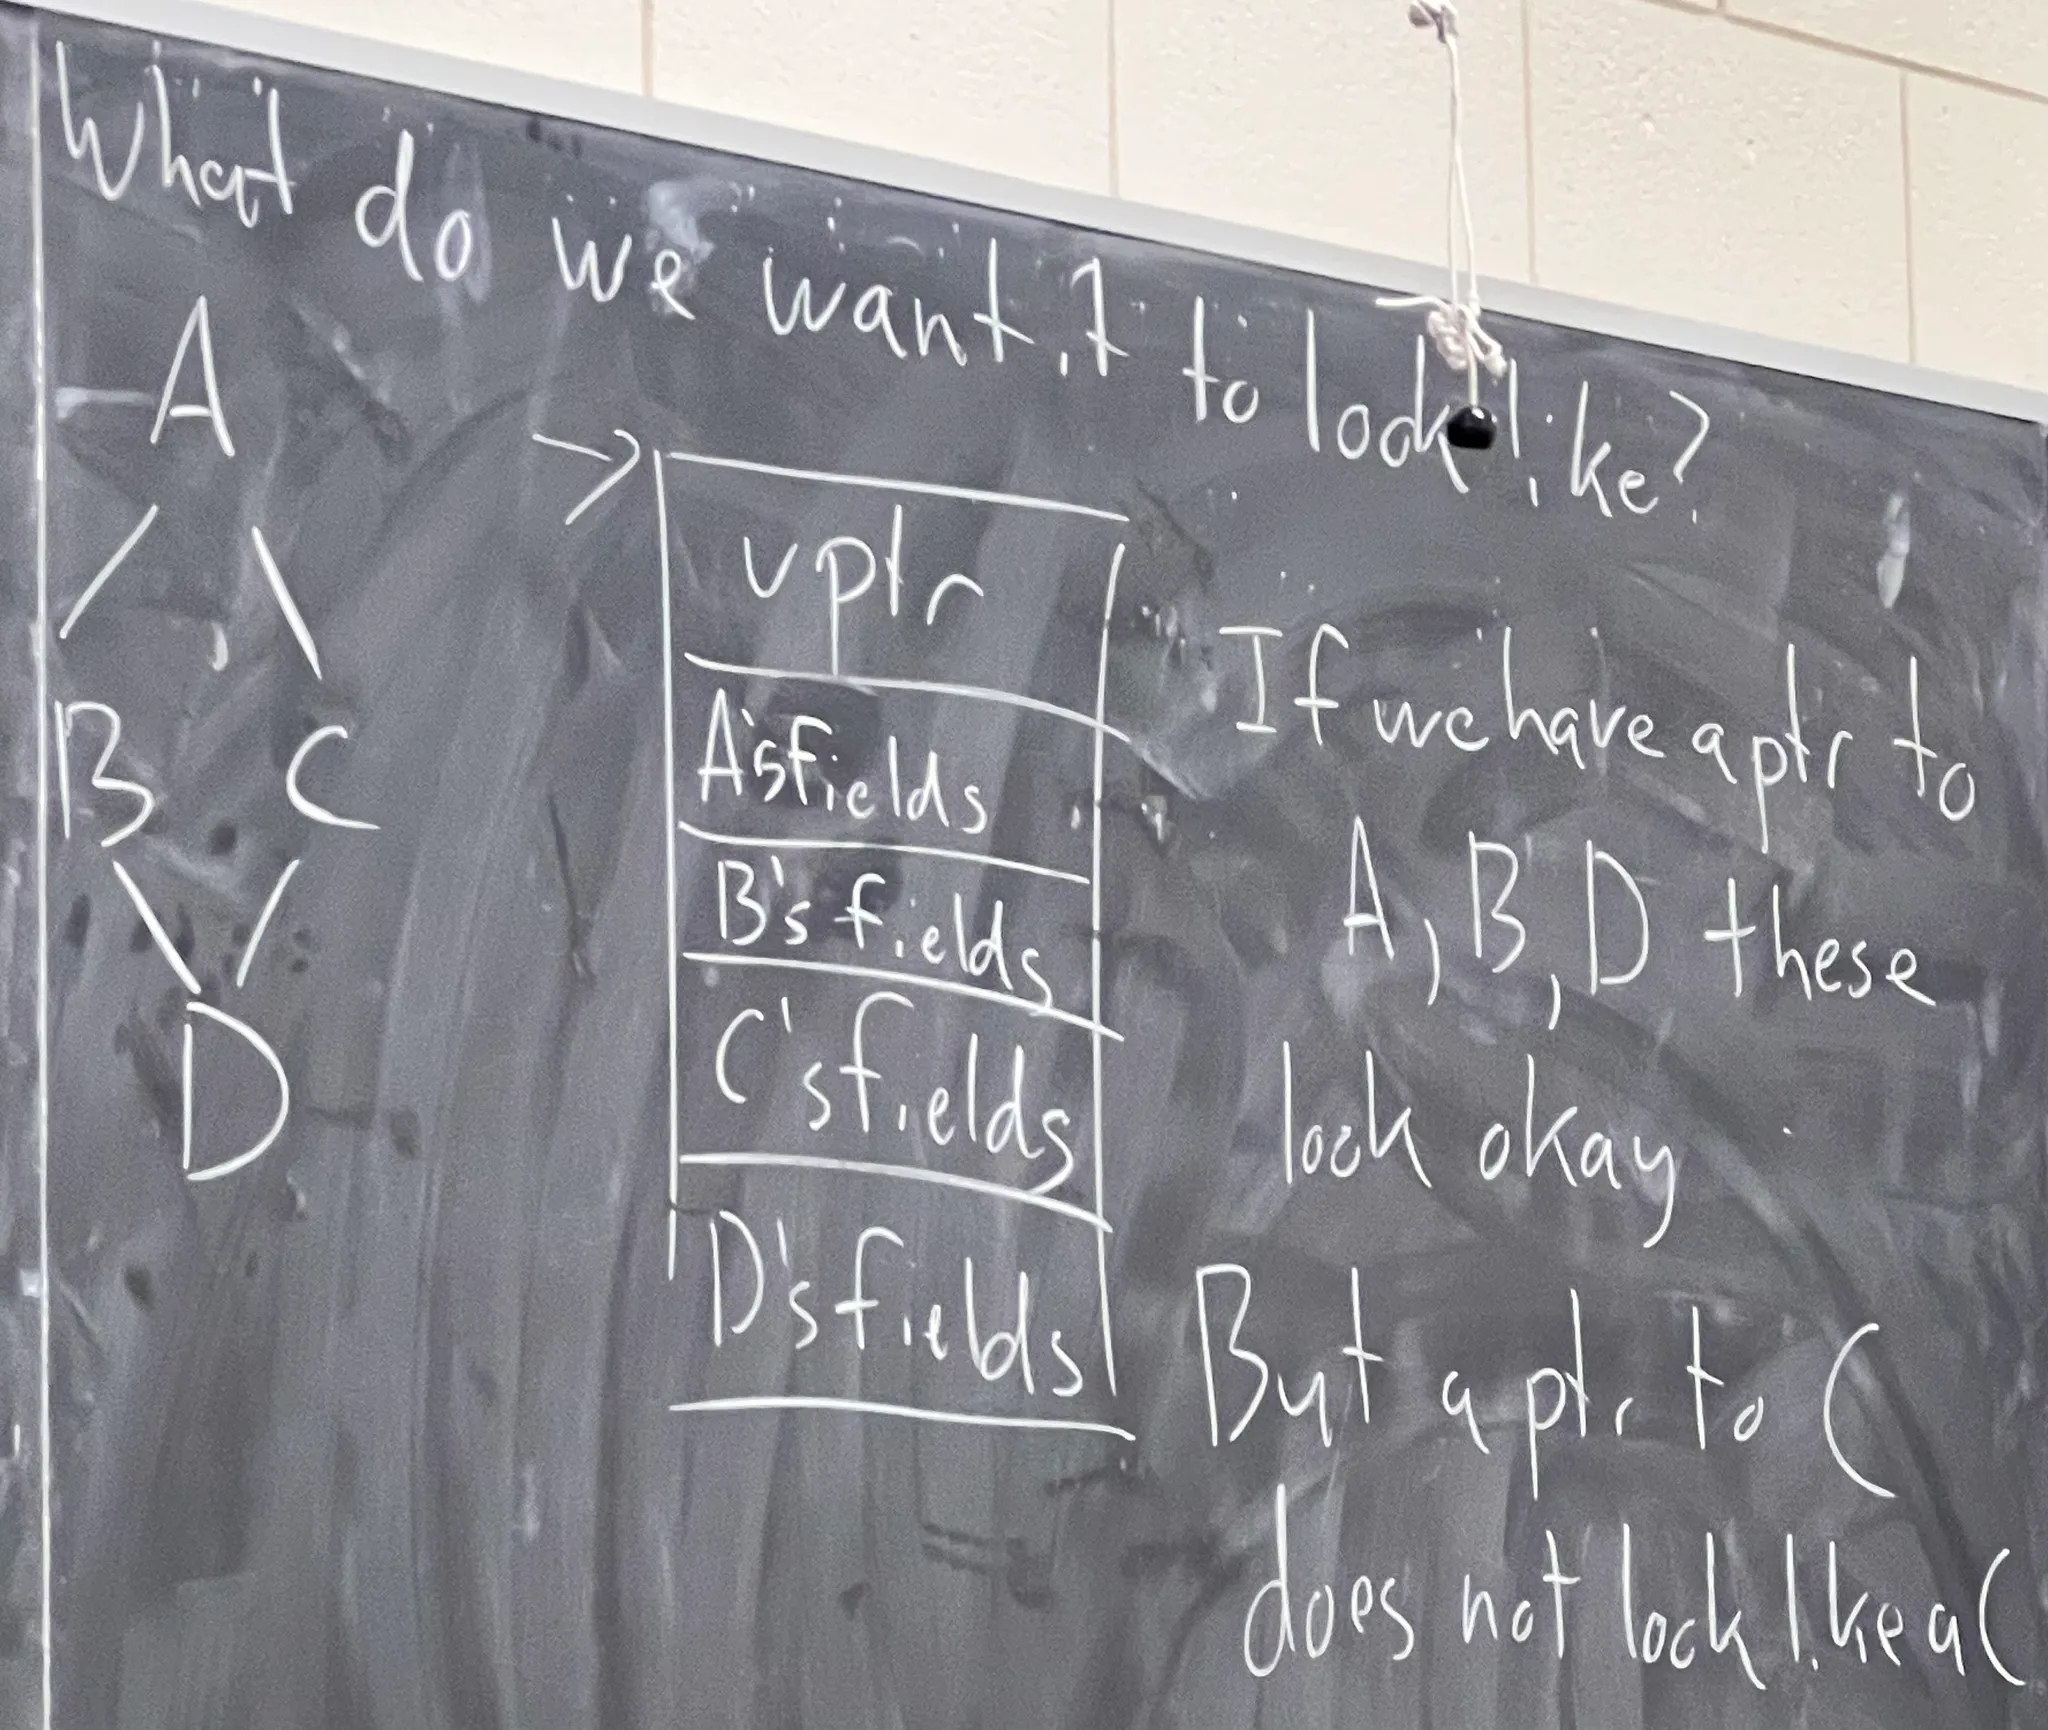 What do we want it to look like?
A
B C
D
vptr
A's fields
B's fields
C's fields
D's fields
If we have a ptr to
A, B, D these
look okay
But a ptr to C
does not look like a C